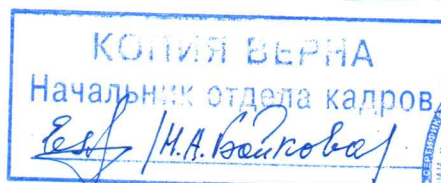 КОПИЯ ВЕРНА
Начальник отдела кадров
/Н.А. Бойкова/